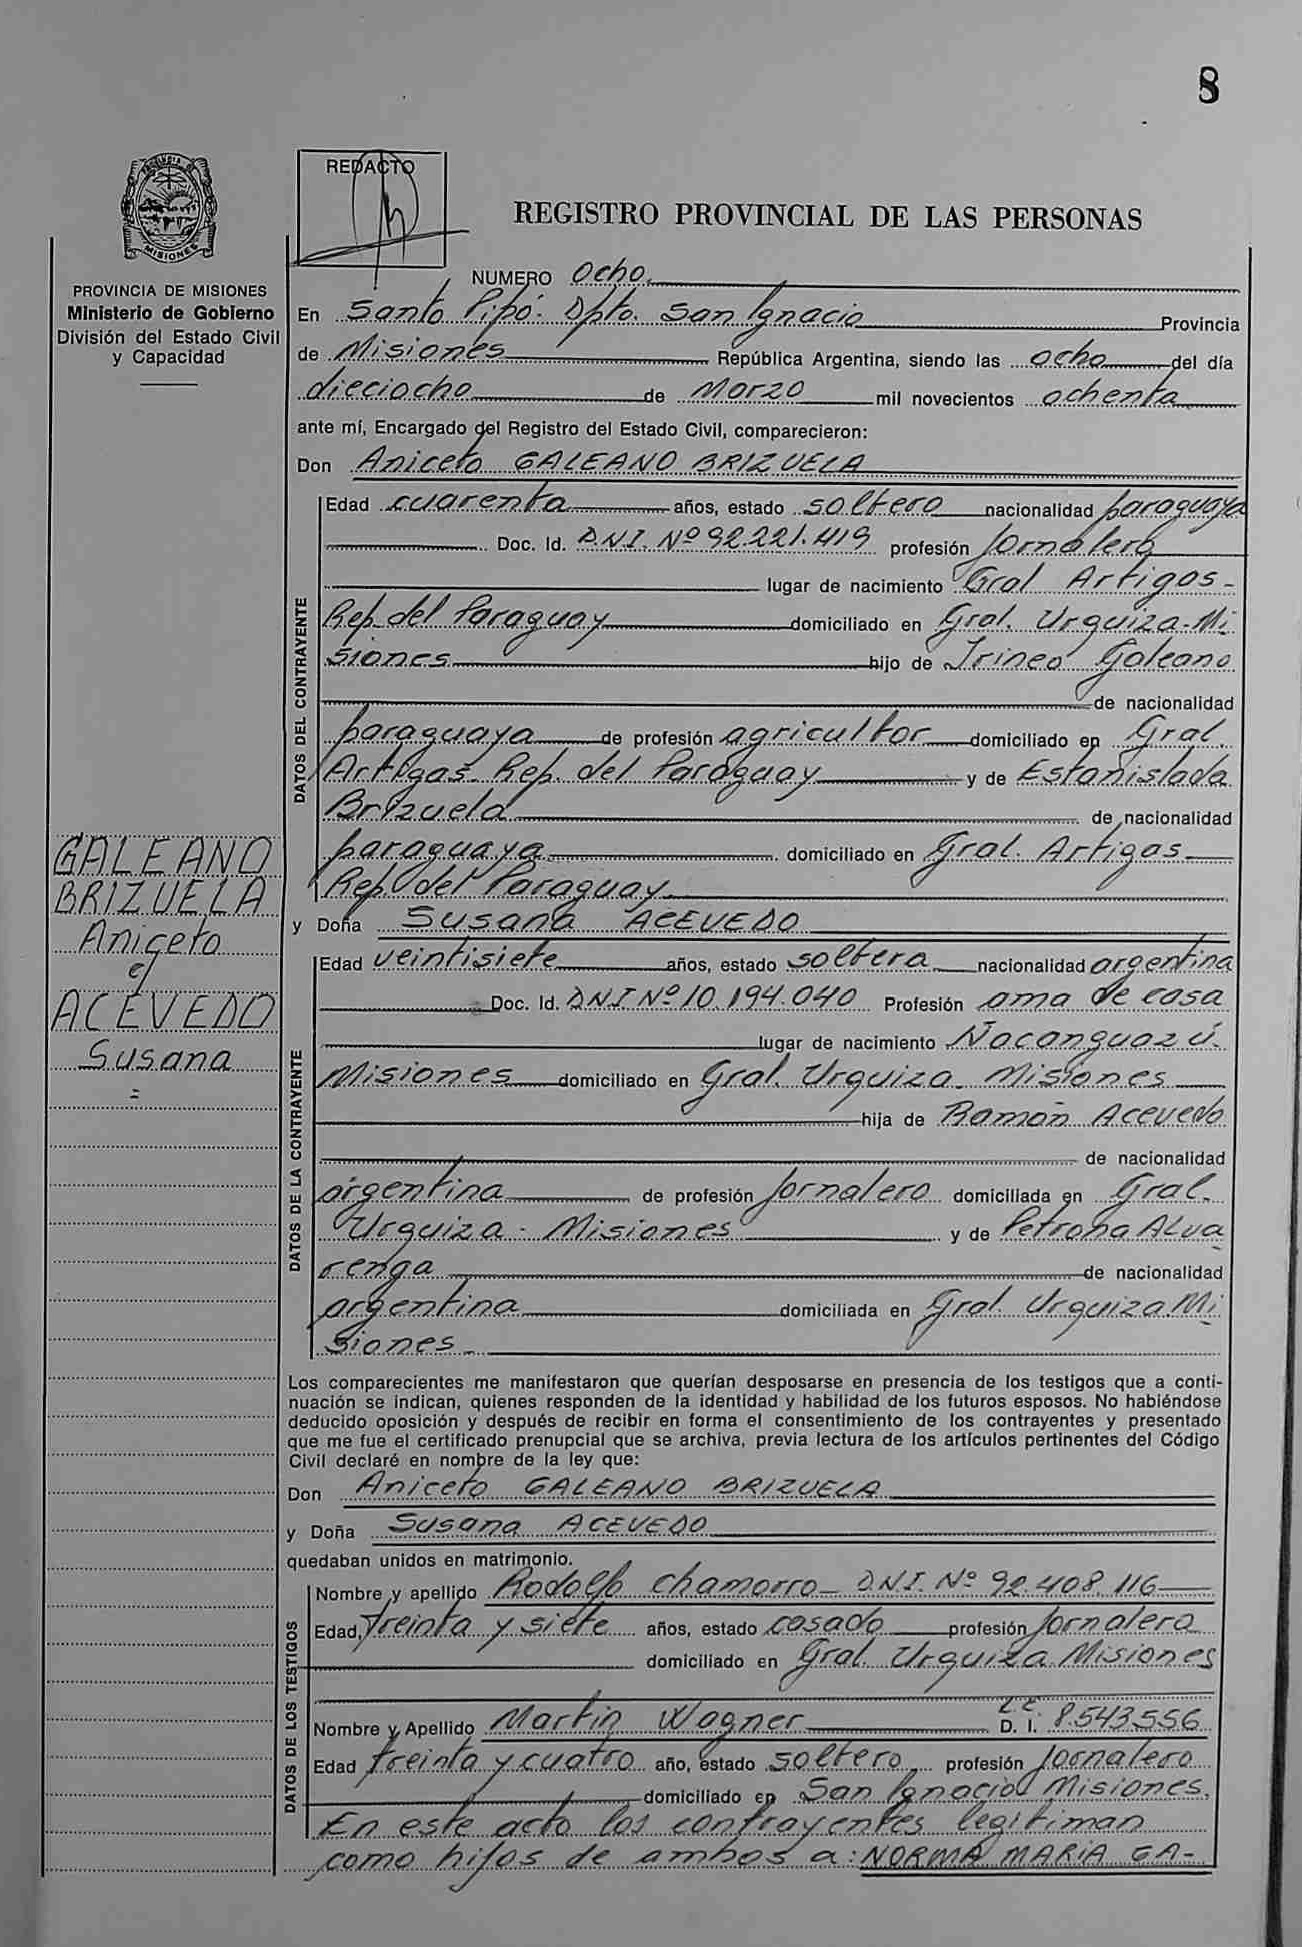 8
REDACTO
REGISTRO PROVINCIAL DE LAS PERSONAS
MISIONES
PROVINCIA DE MISIONES
Ministerio de Gobierno
División del Estado Civil
y Capacidad
NUMERO Ocho.
En Santo Pipó. Dpto. San Ignacio Provincia
de Misiones República Argentina, siendo las ocho del día
dieciocho de Marzo mil novecientos ochenta
ante mí, Encargado del Registro del Estado Civil, comparecieron:
Don Aniceto GALEANO BRIZUELA
DATOS DEL CONTRAYENTE
Edad cuarenta años, estado soltero nacionalidad paraguaya
Doc. Id. D.N.I. Nº 92.221.419 profesión Jornalero
lugar de nacimiento Gral Artigas-
Rep. del Paraguay domiciliado en Gral. Urquiza-Mi
siones hijo de Irineo Galeano
de nacionalidad
paraguaya de profesión agricultor domiciliado en Gral.
Artigas- Rep. del Paraguay y de Estanislada
Brizuela de nacionalidad
paraguaya domiciliado en Gral. Artigas
Rep. del Paraguay
GALEANO
BRIZUELA
Aniceto
c/
ACEVEDO
Susana
=
y Doña Susana ACEVEDO
DATOS DE LA CONTRAYENTE
Edad veintisiete años, estado soltera nacionalidad argentina
Doc. Id. DNI Nº 10.194.040 Profesión ama de casa
lugar de nacimiento Ñacanguazú.
Misiones domiciliado en Gral. Urquiza- Misiones
hija de Ramón Acevedo
de nacionalidad
argentina de profesión Jornalero domiciliada en Gral.
Urquiza - Misiones y de Petrona Alva
renga de nacionalidad
argentina domiciliada en Gral. Urquiza.Mi
siones-
Los comparecientes me manifestaron que querían desposarse en presencia de los testigos que a conti-
nuación se indican, quienes responden de la identidad y habilidad de los futuros esposos. No habiéndose
deducido oposición y después de recibir en forma el consentimiento de los contrayentes y presentado
que me fue el certificado prenupcial que se archiva, previa lectura de los artículos pertinentes del Código
Civil declaré en nombre de la ley que:
Don Aniceto GALEANO BRIZUELA
y Doña Susana ACEVEDO
quedaban unidos en matrimonio.
DATOS DE LOS TESTIGOS
Nombre y apellido Rodolfo Chamorro- D.N.I. Nº 92.408.116
Edad, treinta y siete años, estado casado profesión Jornalero
domiciliado en Gral. Urquiza Misiones
Nombre y Apellido Martin Wagner L.E. D. I. 8.543.556
Edad treinta y cuatro año, estado soltero profesión Jornalero
domiciliado en San Ignacio Misiones.
En este acto los contrayentes legitiman
como hijos de ambos a: NORMA MARIA GA-